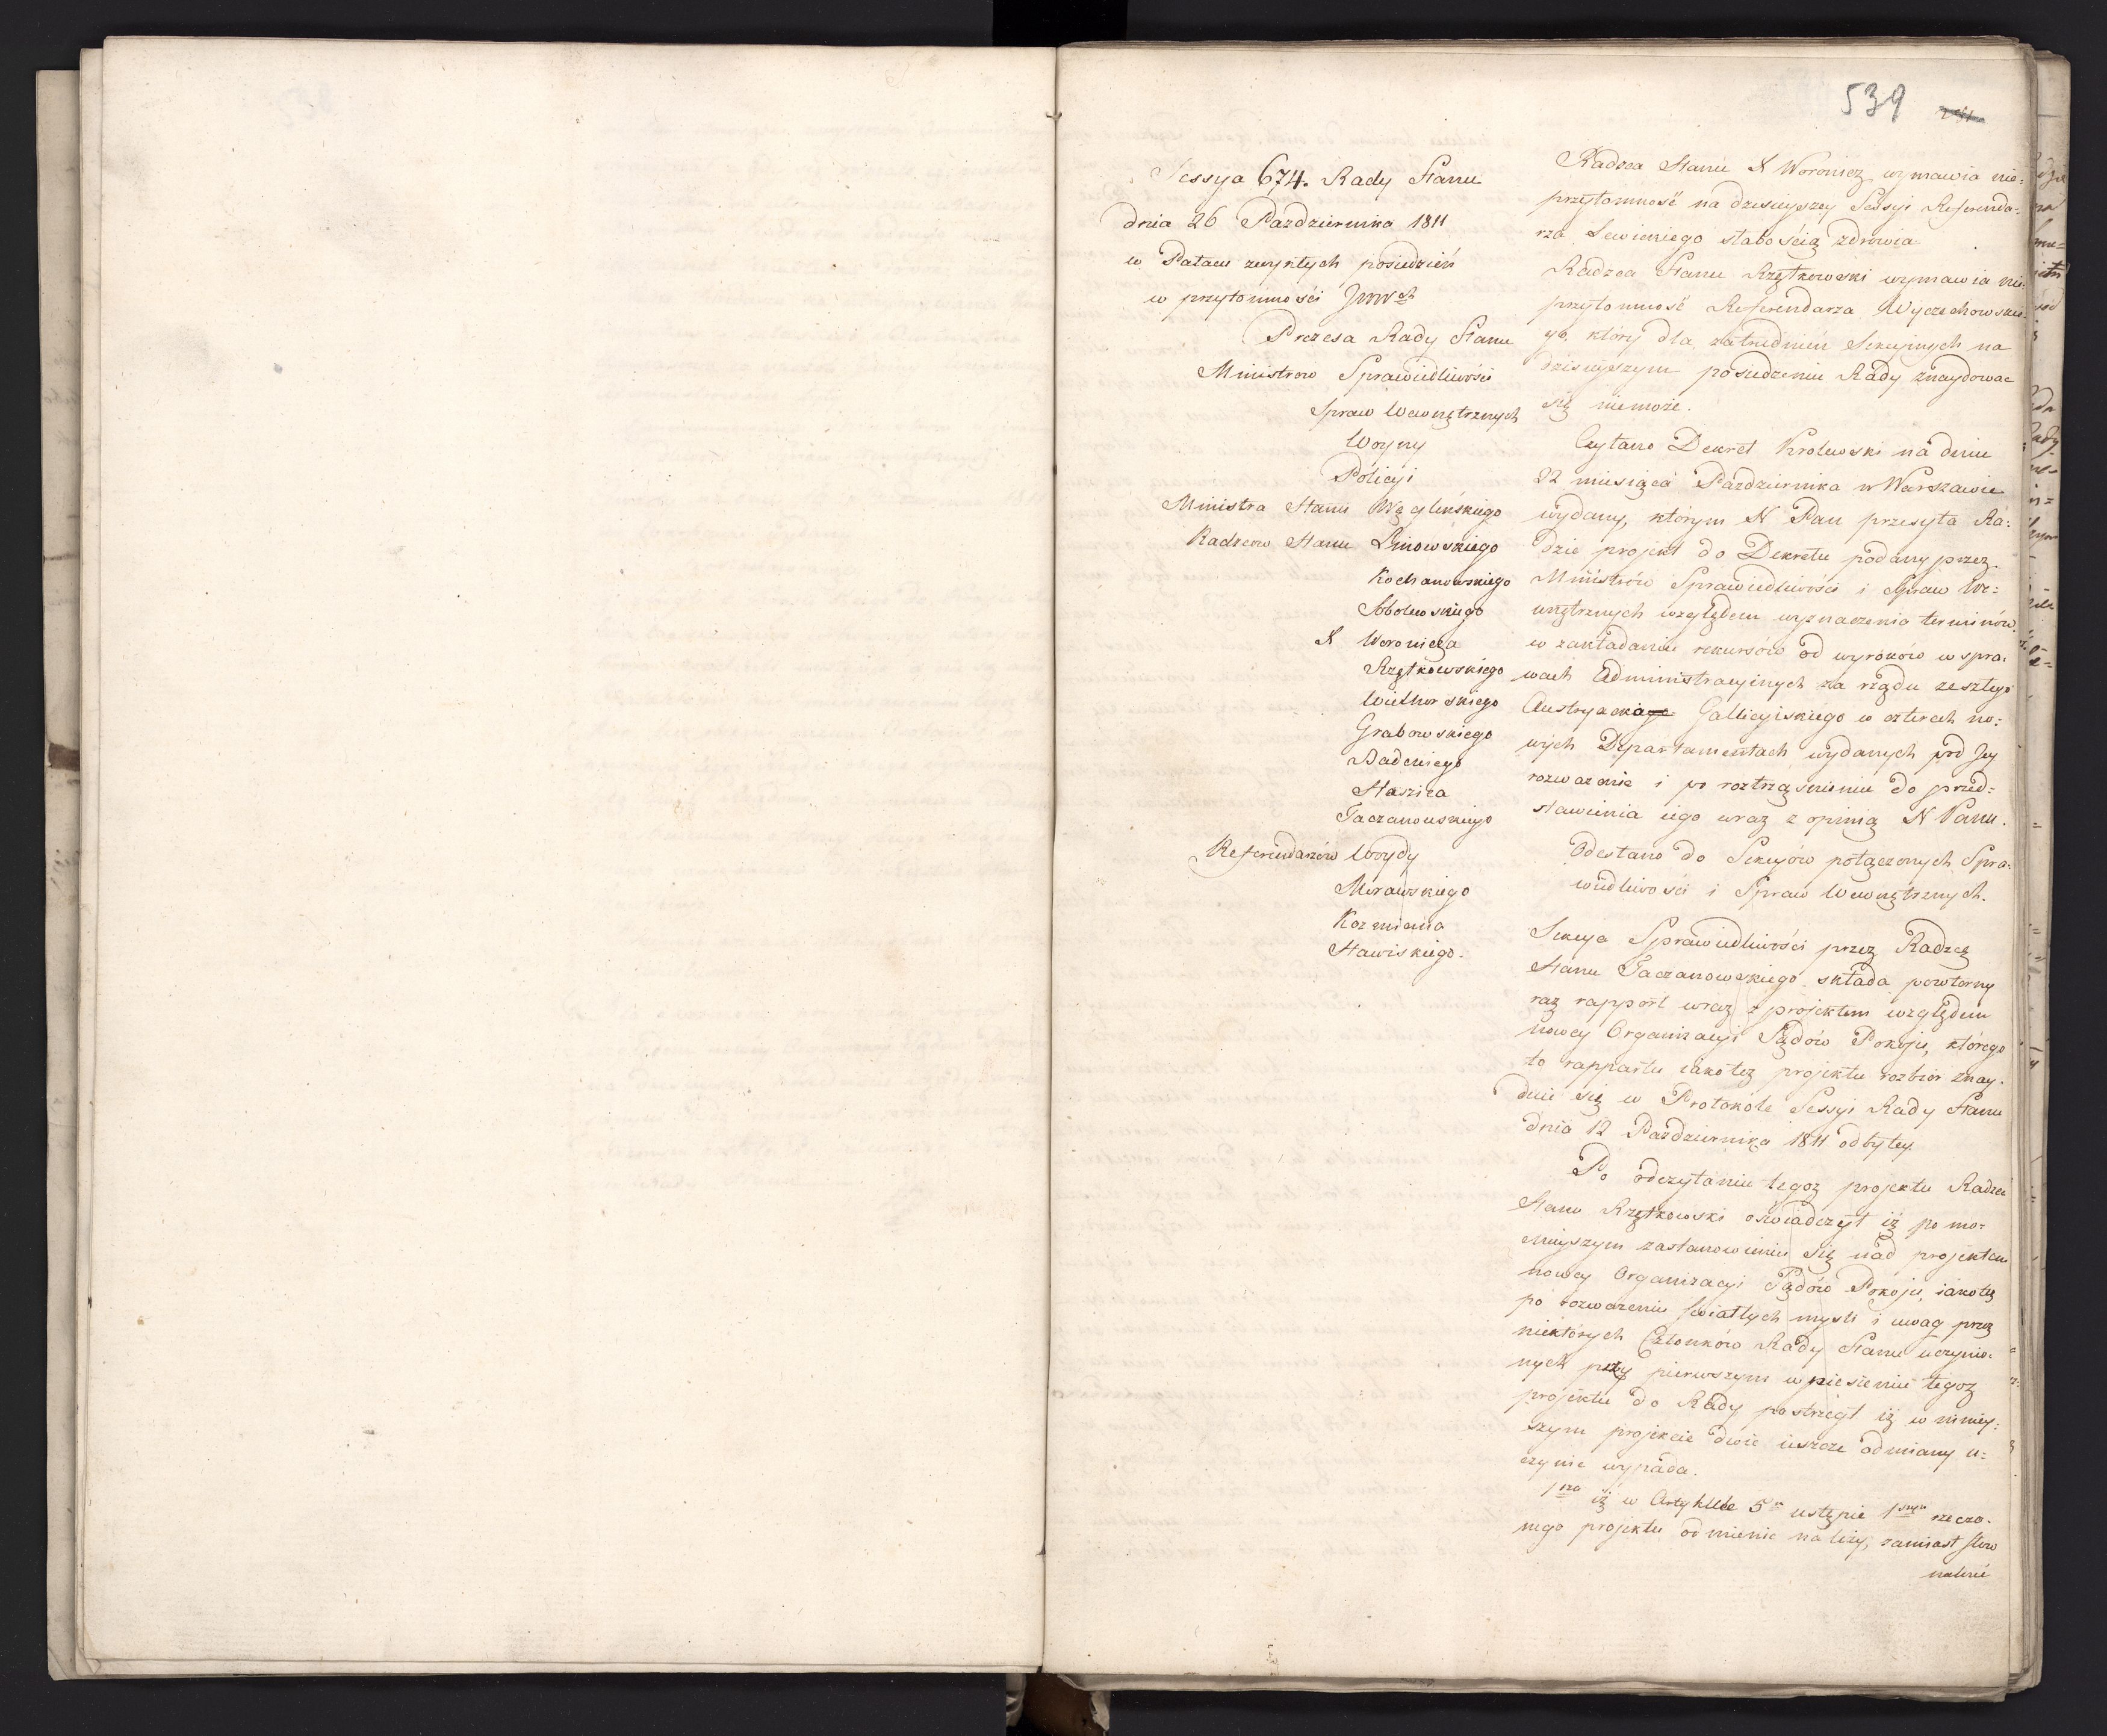 539
Sessya 674. Rady Stanu
dnia 26 Pazdziernika 1811
w Pałacu zwykłych posiedzień
w przytomności JWWch
Prezesa Rady Stanu
Ministrow Sprawiedliwości
Spraw Wewnętrznych
Woyny
Policyi
Ministra Stanu Węglińskiego
Radzcow Stanu Linowskiego
Kochanowskiego
Sobolewskiego
X Woronicza
Rzętkowskiego
Wielhorskiego
Grabowskiego
Badeniego
Staszica
Taczanowskiego
Referendarzów Woydy
Morawskiego
Kozmiana
Stawiskiego.
Radzca Stanu X Woronicz wymawia nie=
przytomność na dzisieyszey Sessyi Referenda=
rza Lewickiego słabością zdrowia
Radzca Stanu Rzętkowski wymawia nie=
przytomność Referendarza Wyczechowskie=
go, który dla zatrudnień Sekcyinych na
dzisieyszym posiedzeniu Rady znaydować
się niemoże.
Czytano Dekret Krolewski na dniu
22 miesiąca Pazdziernika w Warszawie
wydany, którym N Pan przesyła Ra=
dzie projekt do Dekretu podany przez
Ministrów Sprawiedliwości i Spraw We=
wnętrznych względem wyznaczenia terminów
w zakładaniu rekursów od wyroków w spra=
wach Administracyinych za rządu zeszłego
Austryacko Gallicyiskiego w czterech no=
wych Departamentach wydanych pod Jey
rozwazenie i po roztrząśnieniu do przed=
stawienia iego wraz z opinią N Panu.
Odesłano do Sekcyów połączonych Spra=
wiedliwości i Spraw Wewnętrznych.
Sekcya Sprawiedliwości przez Radzcę
Stanu Taczanowskiego składa powtorny
raz rapport wraz z projektem względem
nowey Organizacyi Sądów Pokoju, którego
to rapportu iakotez projektu rozbior znay=
duie się w Protokole Sessyi Rady Stanu
dnia 12 Pazdziernika 1811 odbytey
Po odczytaniu tegoz projektu Radzca
Stanu Rzętkowski oświadczył iż po mo=
cnieyszym zastanowieniu się nad projektem
nowey Organizacyi Sądów Pokoju, iakotez
po rozwazeniu światłych mysli i uwag przez
niektórych Członków Rady Stanu uczynio=
nych przy pierwszym wniesieniu tegoz
projektu do Rady postrzegł iż w niniey=
szym projekcie dwie ieszcze odmiany u=
czynic wypada.
1mo iż w Artykule 5m ustępie 1szym rzeczo=
nego projektu odmienic nalezy, zamiast słow